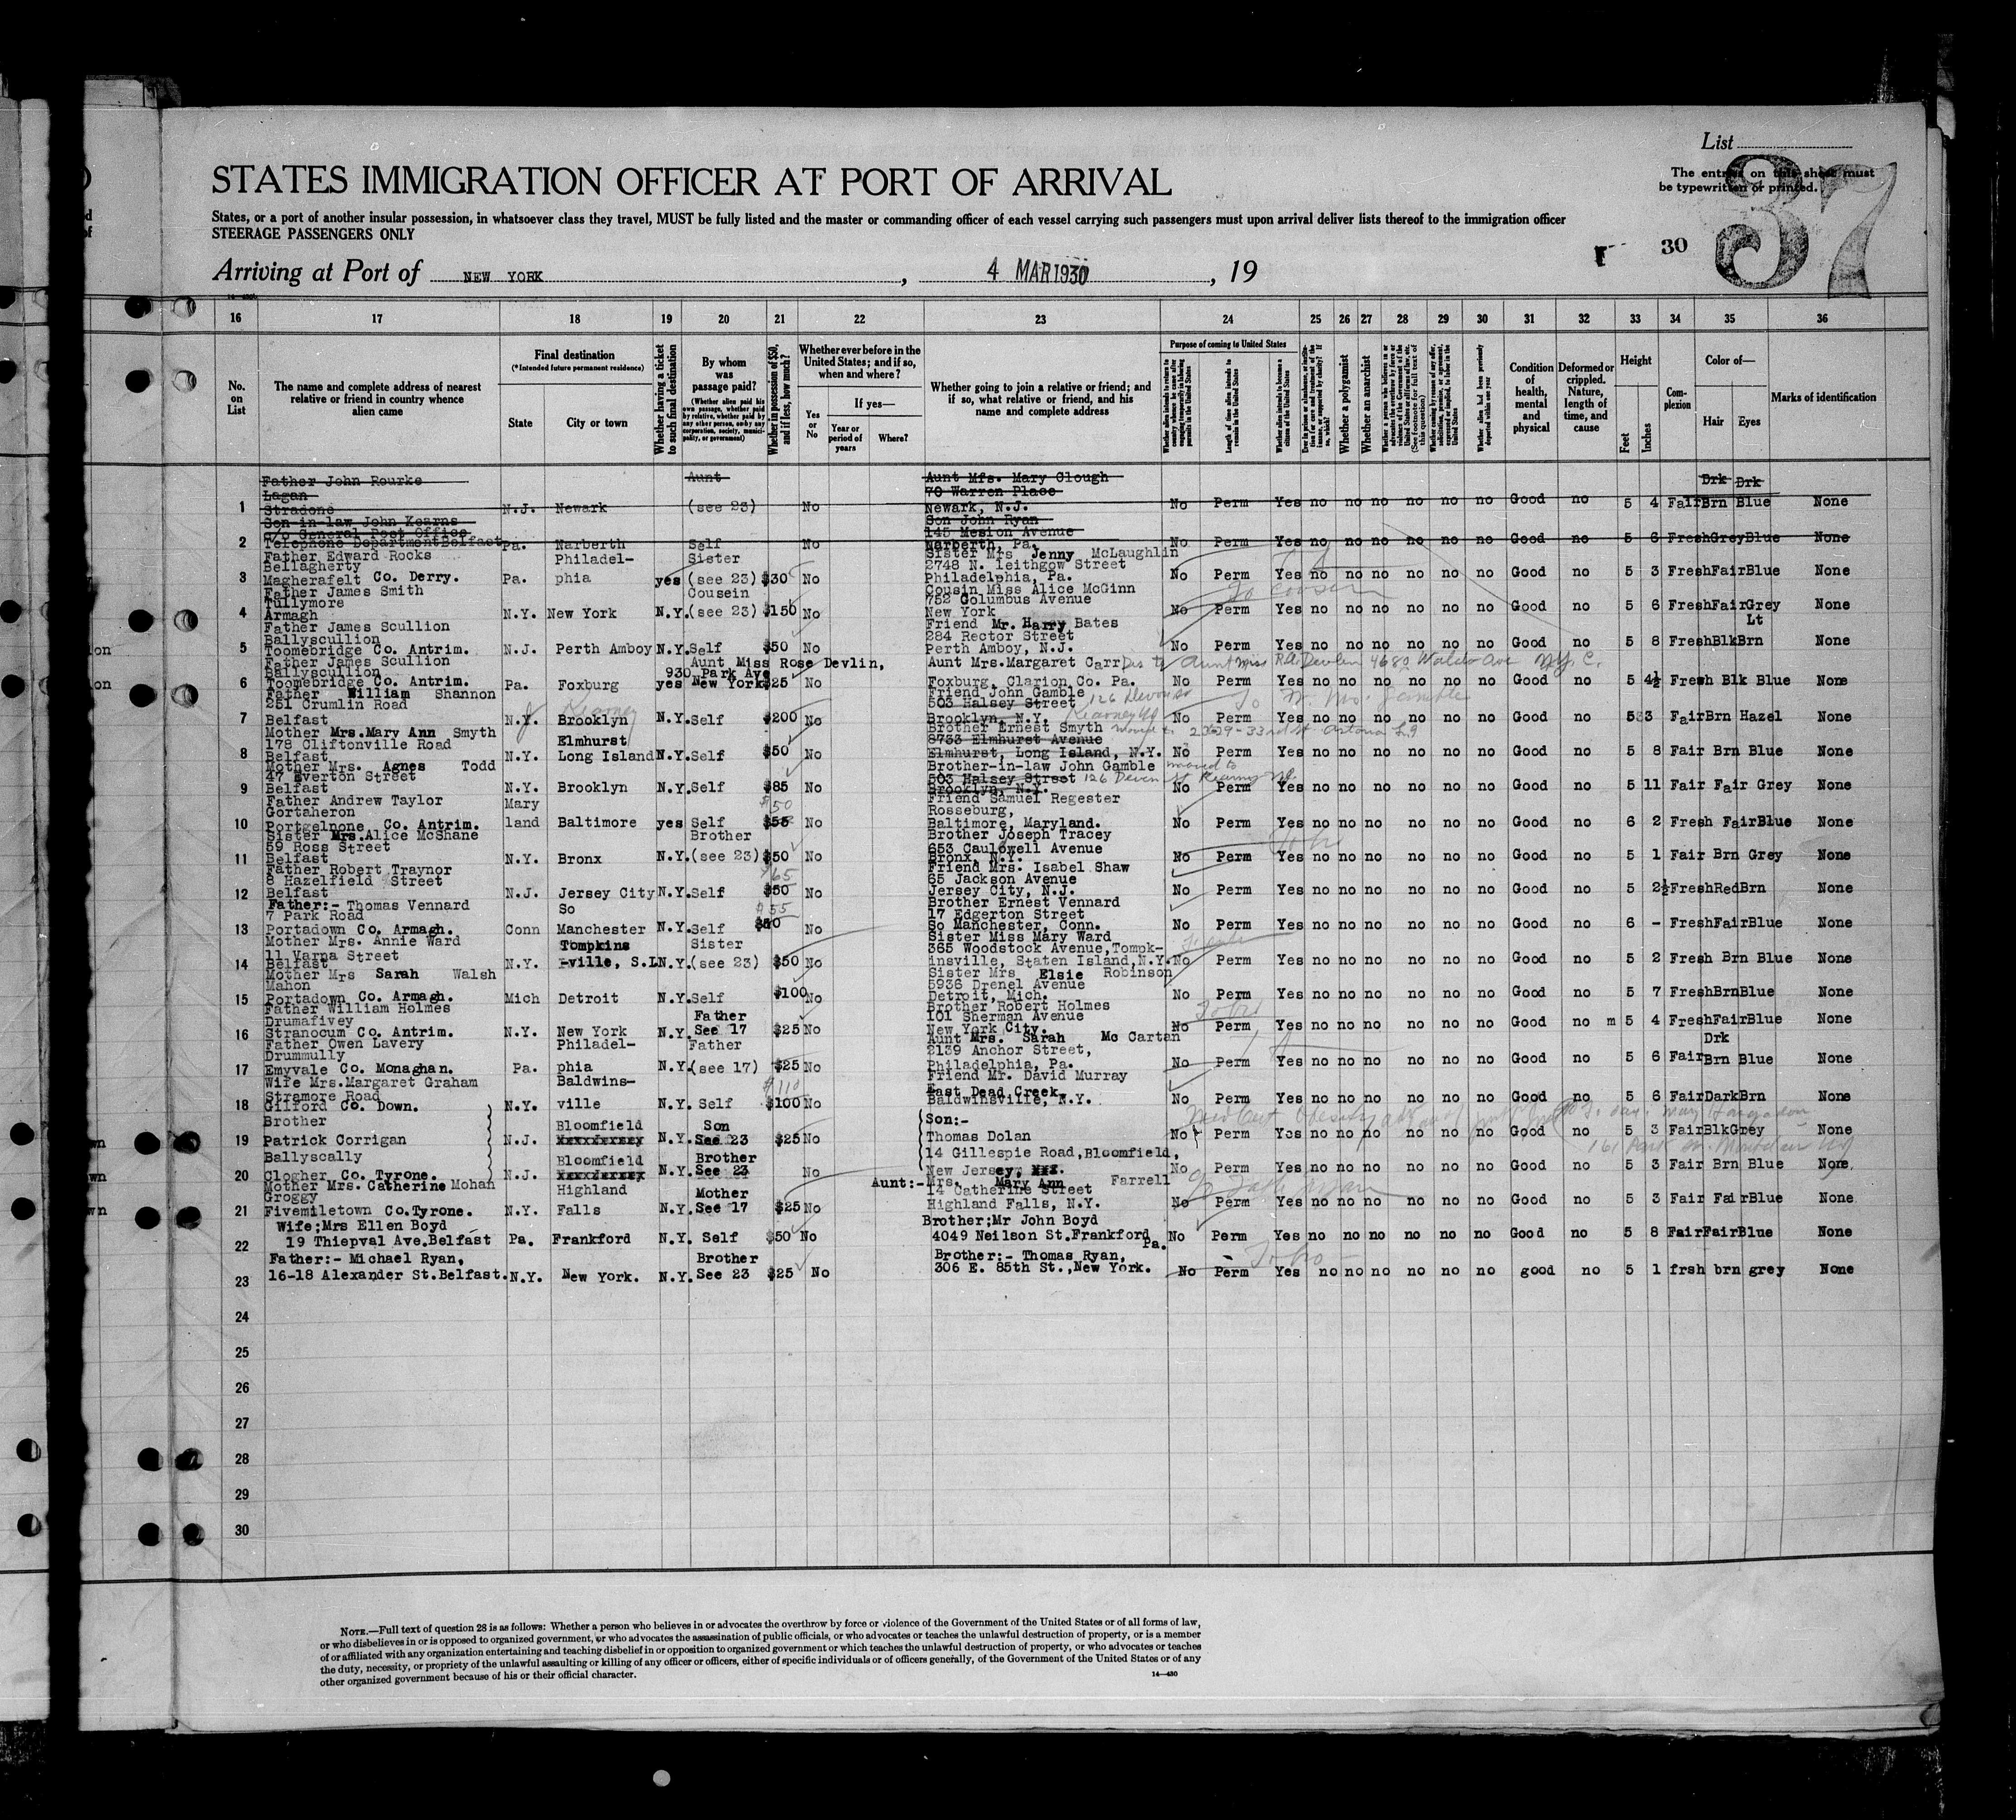 List
The entries on this sheet must
be typewritten or printed.
37
STATES IMMIGRATION OFFICER AT PORT OF ARRIVAL
States, or a port of another insular possession, in whatsoever class they travel, MUST be fully listed and the master or commanding officer of each vessel carrying such passengers must upon arrival deliver lists thereof to the immigration officer
STEERAGE PASSENGERS ONLY
30
Arriving at Port of NEW YORK, 4 MAR 1930, 19
16 17 18 19 20 21 22 23 24 25 26 27 28 29 30 31 32 33 34 35 36
No. on List
The name and complete address of nearest relative or friend in country whence alien came
Final destination
(*Intended future permanent residence)
State
City or town
Whether having a ticket to such final destination
By whom was passage paid?
(Whether alien paid his own passage, whether paid by relative, whether paid by any other person, or by any corporation, society, municipality, or government)
Whether in possession of $50, and if less, how much?
Whether ever before in the United States; and if so, when and where?
Yes or No
If yes—
Year or period of years
Where?
Whether going to join a relative or friend; and if so, what relative or friend, and his name and complete address
Purpose of coming to United States
Length of time alien intends to remain in the United States
Whether alien intends to become a citizen of the United States
Whether a polygamist
Whether an anarchist
Condition of health, mental and physical
Deformed or crippled. Nature, length of time, and cause
Height
Feet
Inches
Complexion
Color of—
Hair
Eyes
Marks of identification
1 Father John Rourke Lagan Stradone N.J. Newark Aunt (see 23) No Aunt Mrs. Mary Clough 70 Warren Place Newark, N.J. No Perm Yes no no no no no no Good no 5 4 Fair Drk Brn Drk Blue None
2 Son-in-law John Kearns c/o General Post Office Telephone Department Belfast Pa. Narberth Self No Son John Ryan 145 Mesion Avenue Narberth, Pa. No Perm Yes no no no no no no Good no 5 6 Fresh Grey Blue None
3 Father Edward Rocks Bellagherty Magherafelt Co. Derry. Pa. Philadelphia yes Sister (see 23) $30 No Sister Mrs Jenny McLaughlin 2748 N. leithgow Street Philadelphia, Pa. No Perm Yes no no no no no no Good no 5 3 Fresh Fair Blue None
4 Father James Smith Tullymore Armagh N.Y. New York N.Y. Cousein (see 23) $150 No Cousin Miss Alice McGinn 752 Columbus Avenue New York No Perm Yes no no no no no no Good no 5 6 Fresh Fair Grey None
To Cousin
5 Father James Scullion Ballyscullion Toomebridge Co. Antrim. N.J. Perth Amboy N.Y. Self $50 No Friend Mr. Harry Bates 284 Rector Street Perth Amboy, N.J. No Perm Yes no no no no no no Good no 5 8 Fresh Blk Lt Brn None
6 Father James Scullion Ballyscullion Toomebridge Co. Antrim. Pa. Foxburg yes Aunt Miss Rose Devlin, 930 Park Ave New York $25 No Aunt Mrs. Margaret Carr Foxburg, Clarion Co. Pa. No Perm Yes no no no no no no Good no 5 4½ Fresh Blk Blue None
Aunt Miss R.A. Devlin 4680 Waldo Ave N.Y.C.
7 Father William Shannon 251 Crumlin Road Belfast N.Y. Brooklyn Kearney N.Y. Self $200 No Friend John Gamble 503 Halsey Street Brooklyn, N.Y. 126 Devon St Kearney NJ No Perm Yes no no no no no no Good no 5 3 Fair Brn Hazel None
8 Mother Mrs. Mary Ann Smyth 178 Cliftonville Road Belfast N.Y. Elmhurst Long Island N.Y. Self $50 No Brother Ernest Smyth 8733 Elmhurst Avenue Elmhurst, Long Island, N.Y. No Perm Yes no no no no no no Good no 5 8 Fair Brn Blue None
moved to 33rd St Astoria
9 Mother Mrs. Agnes Todd 47 Everton Street Belfast N.Y. Brooklyn N.Y. Self $85 No Brother-in-law John Gamble 503 Halsey Street Brooklyn, N.Y. moved to 126 Devon St Kearny NJ No Perm Yes no no no no no no Good no 5 11 Fair Fair Grey None
10 Father Andrew Taylor Gortaheron Portgelnone Co. Antrim. Maryland Baltimore yes Self $50 $55 No Friend Samuel Regester Rosseburg, Baltimore, Maryland. No Perm Yes no no no no no no Good no 6 2 Fresh Fair Blue None
11 Sister Mrs. Alice McShane 59 Ross Street Belfast N.Y. Bronx N.Y. Brother (see 23) $50 No Brother Joseph Tracey 653 Caulowell Avenue Bronx, N.Y. No Perm Yes no no no no no no Good no 5 1 Fair Brn Grey None
To bro
12 Father Robert Traynor 8 Hazelfield Street Belfast N.J. Jersey City N.Y. Self $65 $50 No Friend Mrs. Isabel Shaw 65 Jackson Avenue Jersey City, N.J. No Perm Yes no no no no no no Good no 5 2½ Fresh Red Brn None
13 Father:- Thomas Vennard 7 Park Road Portadown Co. Armagh. Conn So Manchester N.Y. Self $55 $50 No Brother Ernest Vennard 17 Edgerton Street So Manchester, Conn. No Perm Yes no no no no no no Good no 6 - Fresh Fair Blue None
14 Mother Mrs. Annie Ward 11 Varna Street Belfast N.Y. Tompkins-ville, S.I. N.Y. Sister (see 23) $50 No Sister Miss Mary Ward 365 Woodstock Avenue, Tompkinsville, Staten Island, N.Y. No Perm Yes no no no no no no Good no 5 2 Fresh Brn Blue None
15 Mother Mrs Sarah Walsh Mahon Portadown Co. Armagh. Mich Detroit N.Y. Self $100 No Sister Mrs Elsie Robinson 5936 Drenel Avenue Detroit, Mich. No Perm Yes no no no no no no Good no 5 7 Fresh Brn Blue None
16 Father William Holmes Drumafivey Stranocum Co. Antrim. N.Y. New York N.Y. Father See 17 $25 No Brother Robert Holmes 101 Sherman Avenue New York City. No Perm Yes no no no no no no Good no m 5 4 Fresh Fair Blue None
To bro
17 Father Owen Lavery Drummully Emyvale Co. Monaghan. Pa. Philadelphia N.Y. Father (see 17) $25 No Aunt Mrs. Sarah Mc Cartan 2139 Anchor Street, Philadelphia, Pa. No Perm Yes no no no no no no Good no 5 6 Fair Drk Brn Blue None
18 Wife Mrs. Margaret Graham Stramore Road Gilford Co. Down. N.Y. Baldwins-ville N.Y. Self $110 $100 No Friend Mr. David Murray East Dead Creek, Baldwinsville, N.Y. No Perm Yes no no no no no no Good no 5 6 Fair Dark Brn None
Med Cert Obesity
161 Park St. Montclair NJ
19 Brother Patrick Corrigan N.J. Bloomfield N.Y. Son See 23 $25 No Son:- Thomas Dolan 14 Gillespie Road, Bloomfield, No Perm Yes no no no no no no Good no 5 3 Fair Blk Grey None
20 Ballyscally Clogher Co. Tyrone. N.J. Bloomfield N.Y. Brother See 23 No New Jersey, No Perm Yes no no no no no no Good no 5 3 Fair Brn Blue None
21 Mother Mrs. Catherine Mohan Groggy Fivemiletown Co. Tyrone. N.Y. Highland Falls N.Y. Mother See 17 $25 No Aunt:- Mrs. Mary Ann Farrell 14 Catherine Street Highland Falls, N.Y. No Perm Yes no no no no no no Good no 5 3 Fair Fair Blue None
22 Wife; Mrs Ellen Boyd 19 Thiepval Ave. Belfast Pa. Frankford N.Y. Self $50 No Brother; Mr John Boyd 4049 Neilson St. Frankford Pa. No Perm Yes no no no no no no Good no 5 8 Fair Fair Blue None
23 Father:- Michael Ryan, 16-18 Alexander St. Belfast. N.Y. New York. N.Y. Brother See 23 $25 No Brother:- Thomas Ryan, 306 E. 85th St., New York. No Perm Yes no no no no no no good no 5 1 frsh brn grey None
To bro
24
25
26
27
28
29
30
NOTE.—Full text of question 28 is as follows: Whether a person who believes in or advocates the overthrow by force or violence of the Government of the United States or of all forms of law,
or who disbelieves in or is opposed to organized government, or who advocates the assassination of public officials, or who advocates or teaches the unlawful destruction of property, or is a member
of or affiliated with any organization entertaining and teaching disbelief in or opposition to organized government or which teaches the unlawful destruction of property, or who advocates or teaches
the duty, necessity, or propriety of the unlawful assaulting or killing of any officer or officers, either of specific individuals or of officers generally, of the Government of the United States or of any
other organized government because of his or their official character.
14—430